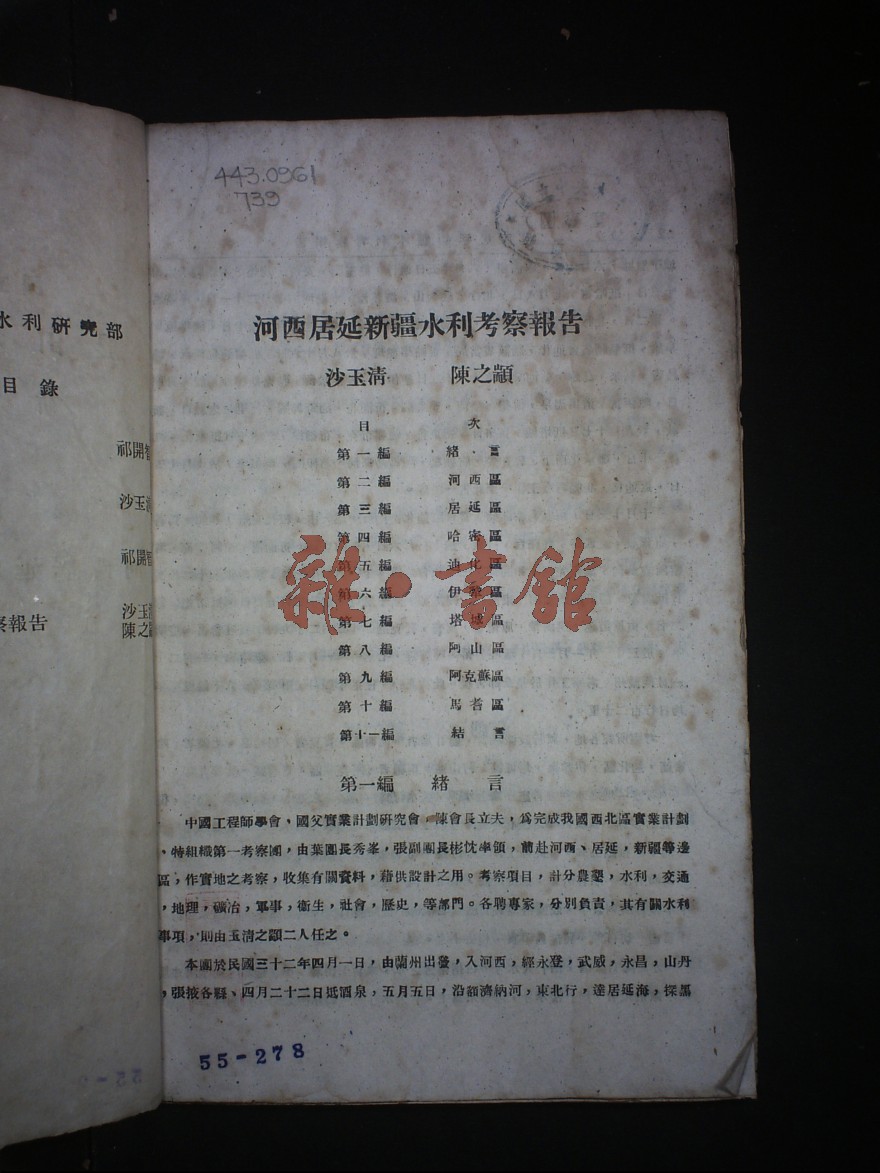 水利研究部
目錄
祁開智
沙玉清
祁開智
沙玉清
察報告 陳之顓
443.0961
739
河西居延新疆水利考察報告
沙玉清 陳之顓
目 次
第一編 緒言
第二編 河西區
第三編 居延區
第四編 哈密區
第五編 迪化區
第六編 伊犂區
第七編 塔城區
第八編 阿山區
第九編 阿克蘇區
第十編 馬耆區
第十一編 結言
雜·書館
第一編 緒言
中國工程師學會、國父實業計劃研究會,陳會長立夫,爲完成我國西北區實業計劃
、特組織第一考察團,由葉團長秀峯,張副團長彬忱率領,前赴河西、居延,新疆等邊
區,作實地之考察,收集有關資料,藉供設計之用。考察項目,計分農墾,水利,交通
,地理,礦冶,軍事,衞生,社會,歷史,等部門。各聘專家,分別負責,其有關水利
事項,則由玉清之顓二人任之。
本團於民國三十二年四月一日,由蘭州出發,入河西,經永登,武威,永昌,山丹
,張掖各縣、四月二十二日抵酒泉,五月五日,沿額濟納河,東北行,達居延海,探黑
55-278